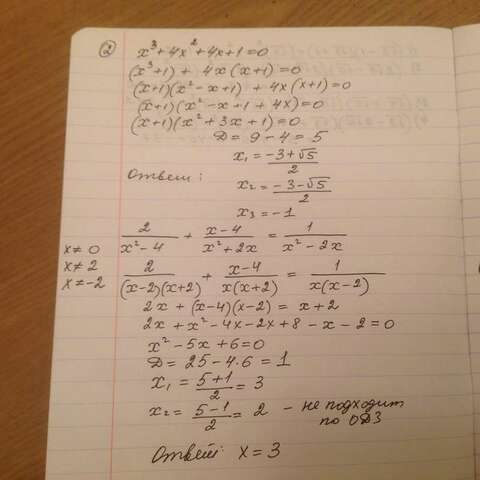 ② x³+4x²+4x+1=0
(x³+1) + 4x(x+1)=0
(x+1)(x²-x+1) + 4x(x+1)=0
(x+1)(x²-x+1+4x)=0
(x+1)(x²+3x+1)=0
D=9-4=5
x₁=(-3+√5)/2
Ответ:
x₂=(-3-√5)/2
x₃=-1
x≠0 2/(x²-4) + (x-4)/(x²+2x) = 1/(x²-2x)
x≠2 2/((x-2)(x+2)) + (x-4)/(x(x+2)) = 1/(x(x-2))
x≠-2
2x + (x-4)(x-2) = x+2
2x + x²-4x-2x+8-x-2=0
x²-5x+6=0
D=25-4·6=1
x₁=(5+1)/2=3
x₂=(5-1)/2=2 - не подходит
по ОДЗ
Ответ: x=3